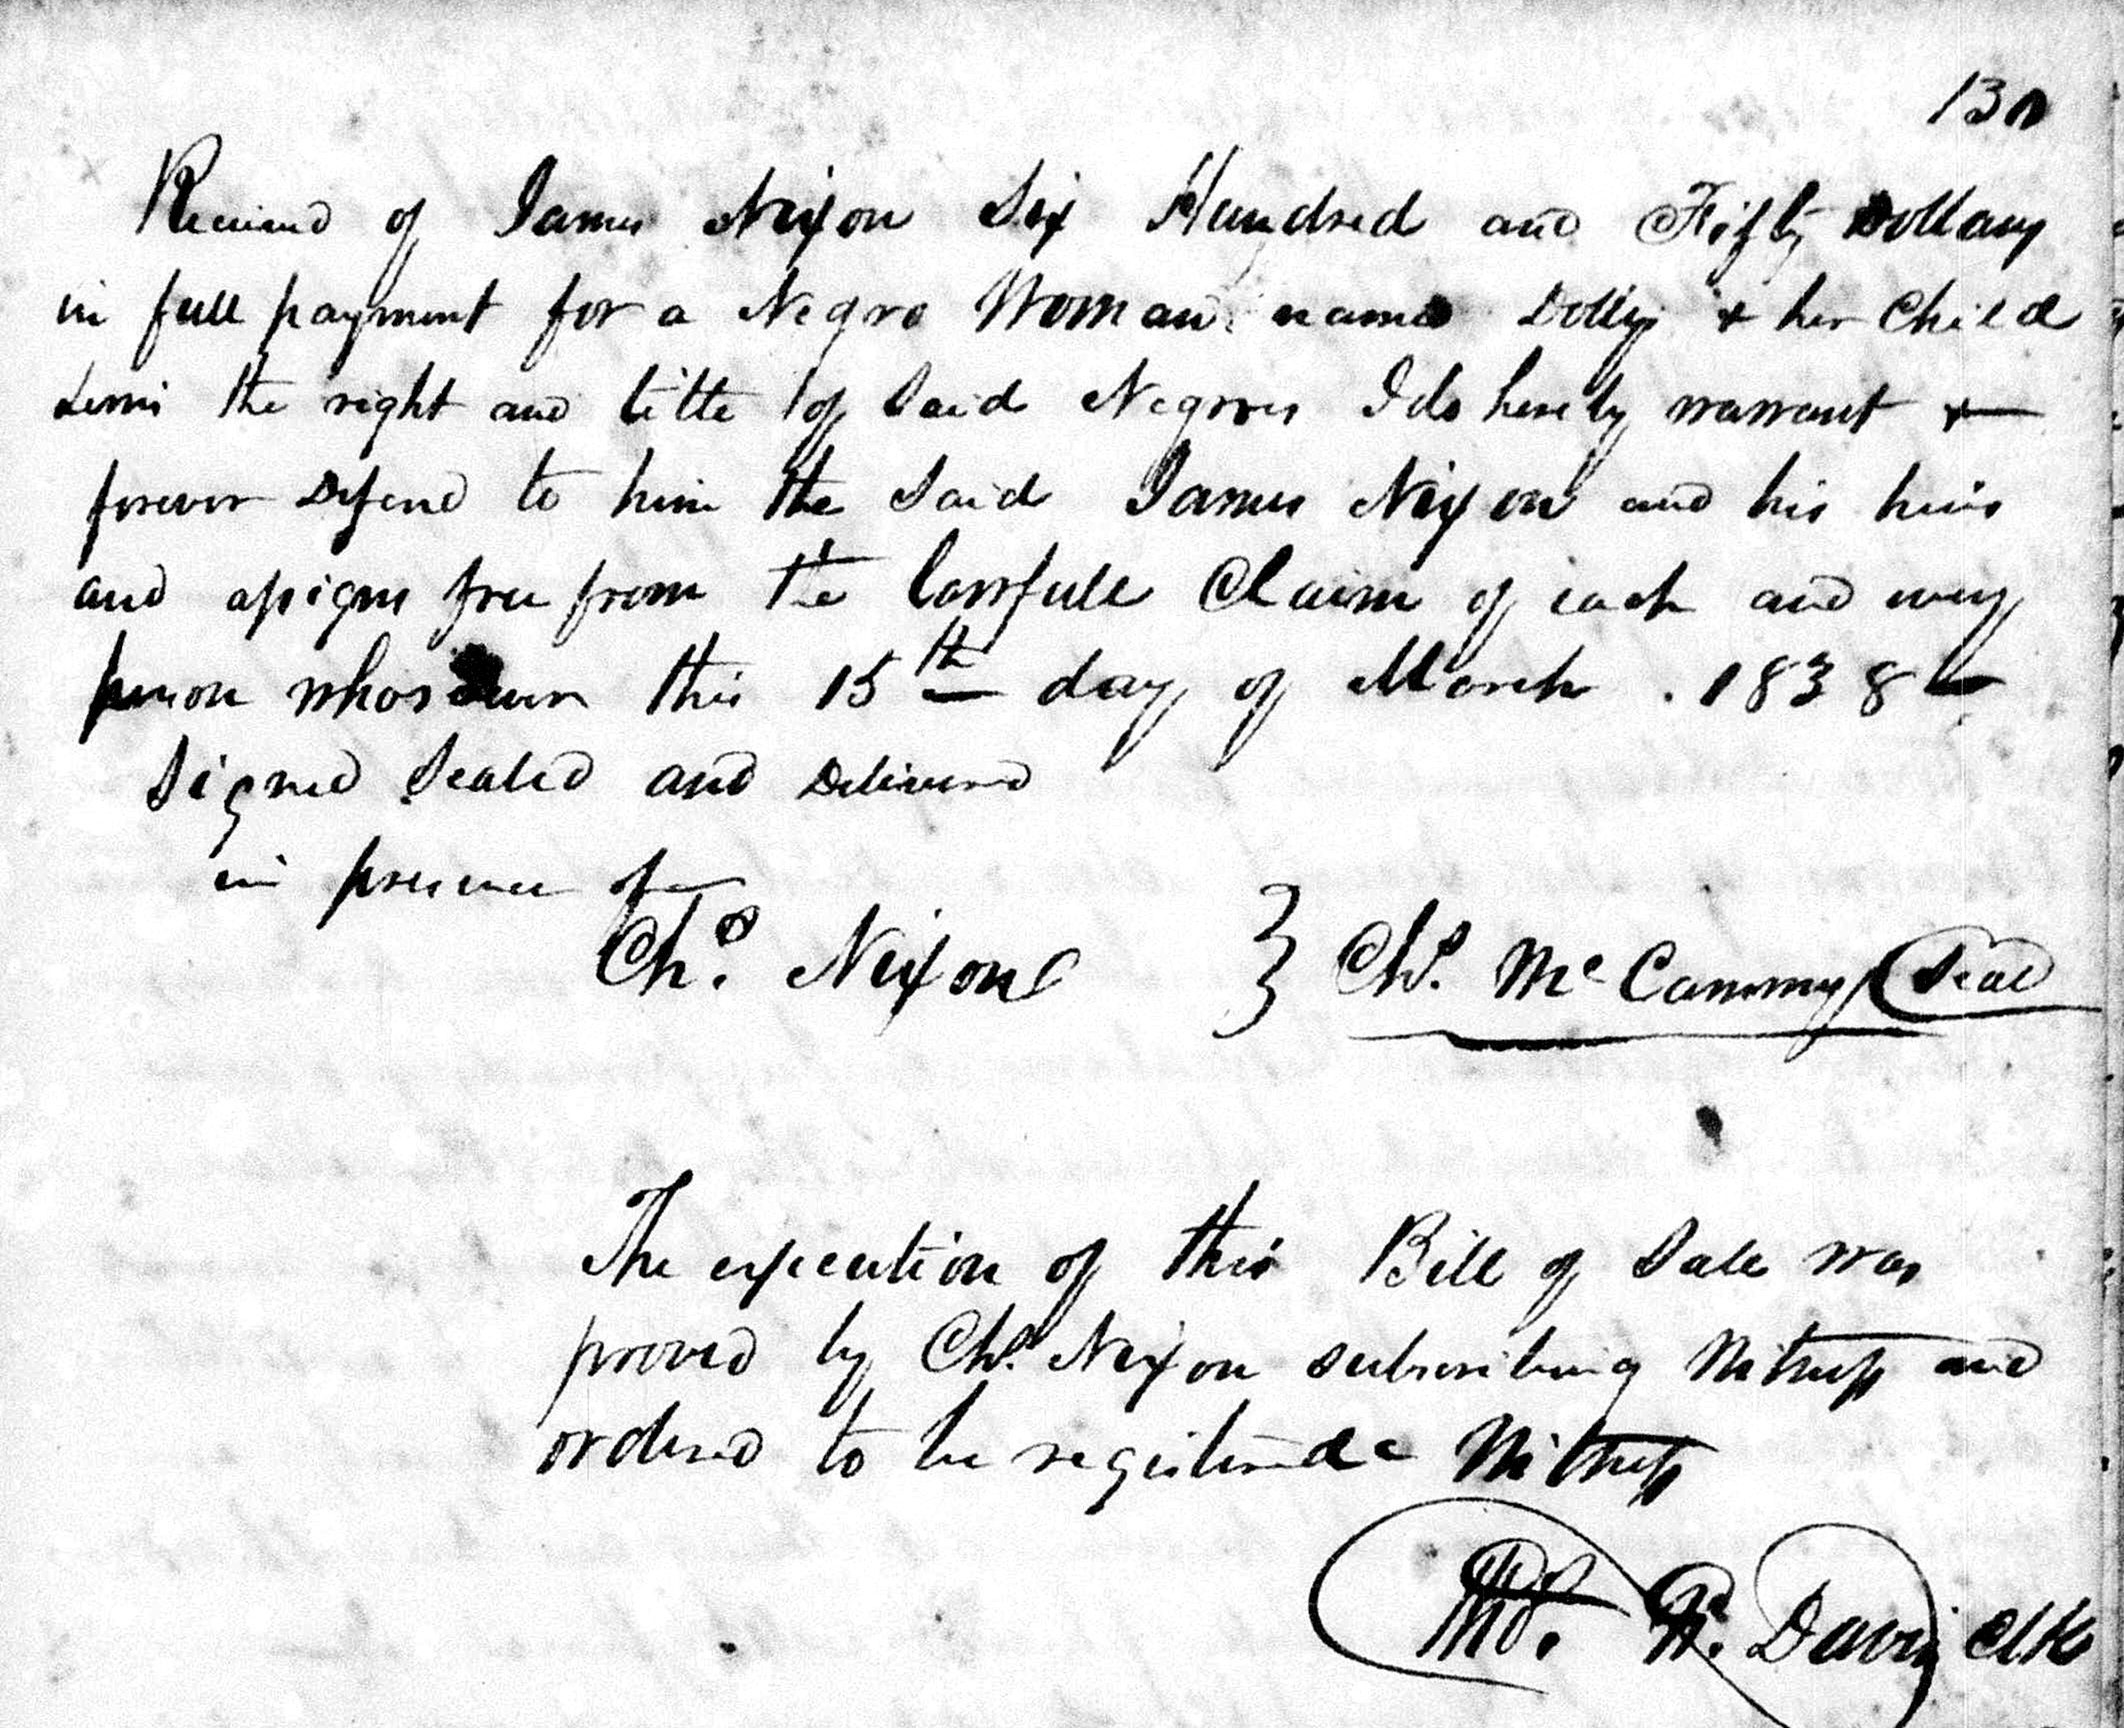 130
Received of James Nixon Six Hundred and Fifty Dollars
in full payment for a Negro Woman named Dolly & her Child
the right and title of Said Negroes I do hereby warrant &
forever Defend to him the Said James Nixon and his heirs
and assigns free from the lawfull Claim of each and every
person whosoever this 15th day of March . 1838
Signed Sealed and Delivered
in presence of
Chs. Nixon } Chs. McCammy Seal
The execution of this Bill of Sale was
proved by Chs. Nixon subscribing Witness and
ordered to be registered Witness
Davis Clk